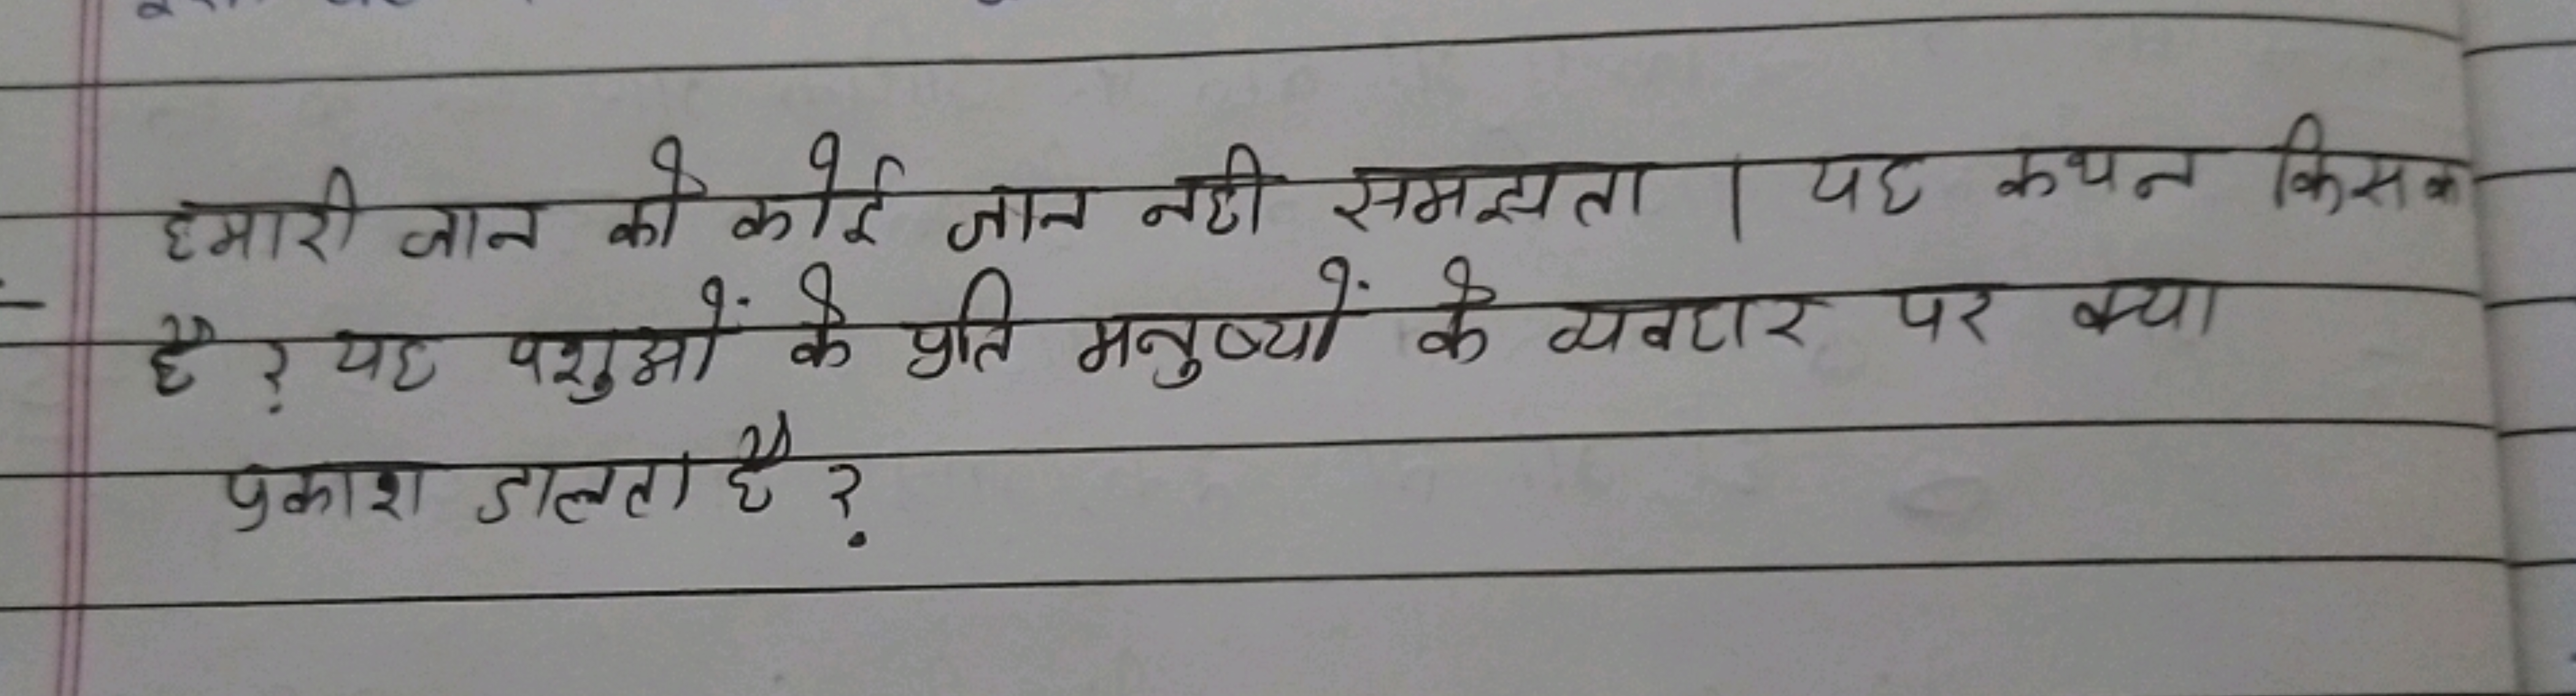 हमारी जान को कोई जान नही समझता । यह कथन किसक
है ? यह पशुओं के प्रति मनुष्यों के व्यवहार पर क्या
प्रकाश डालता है ?